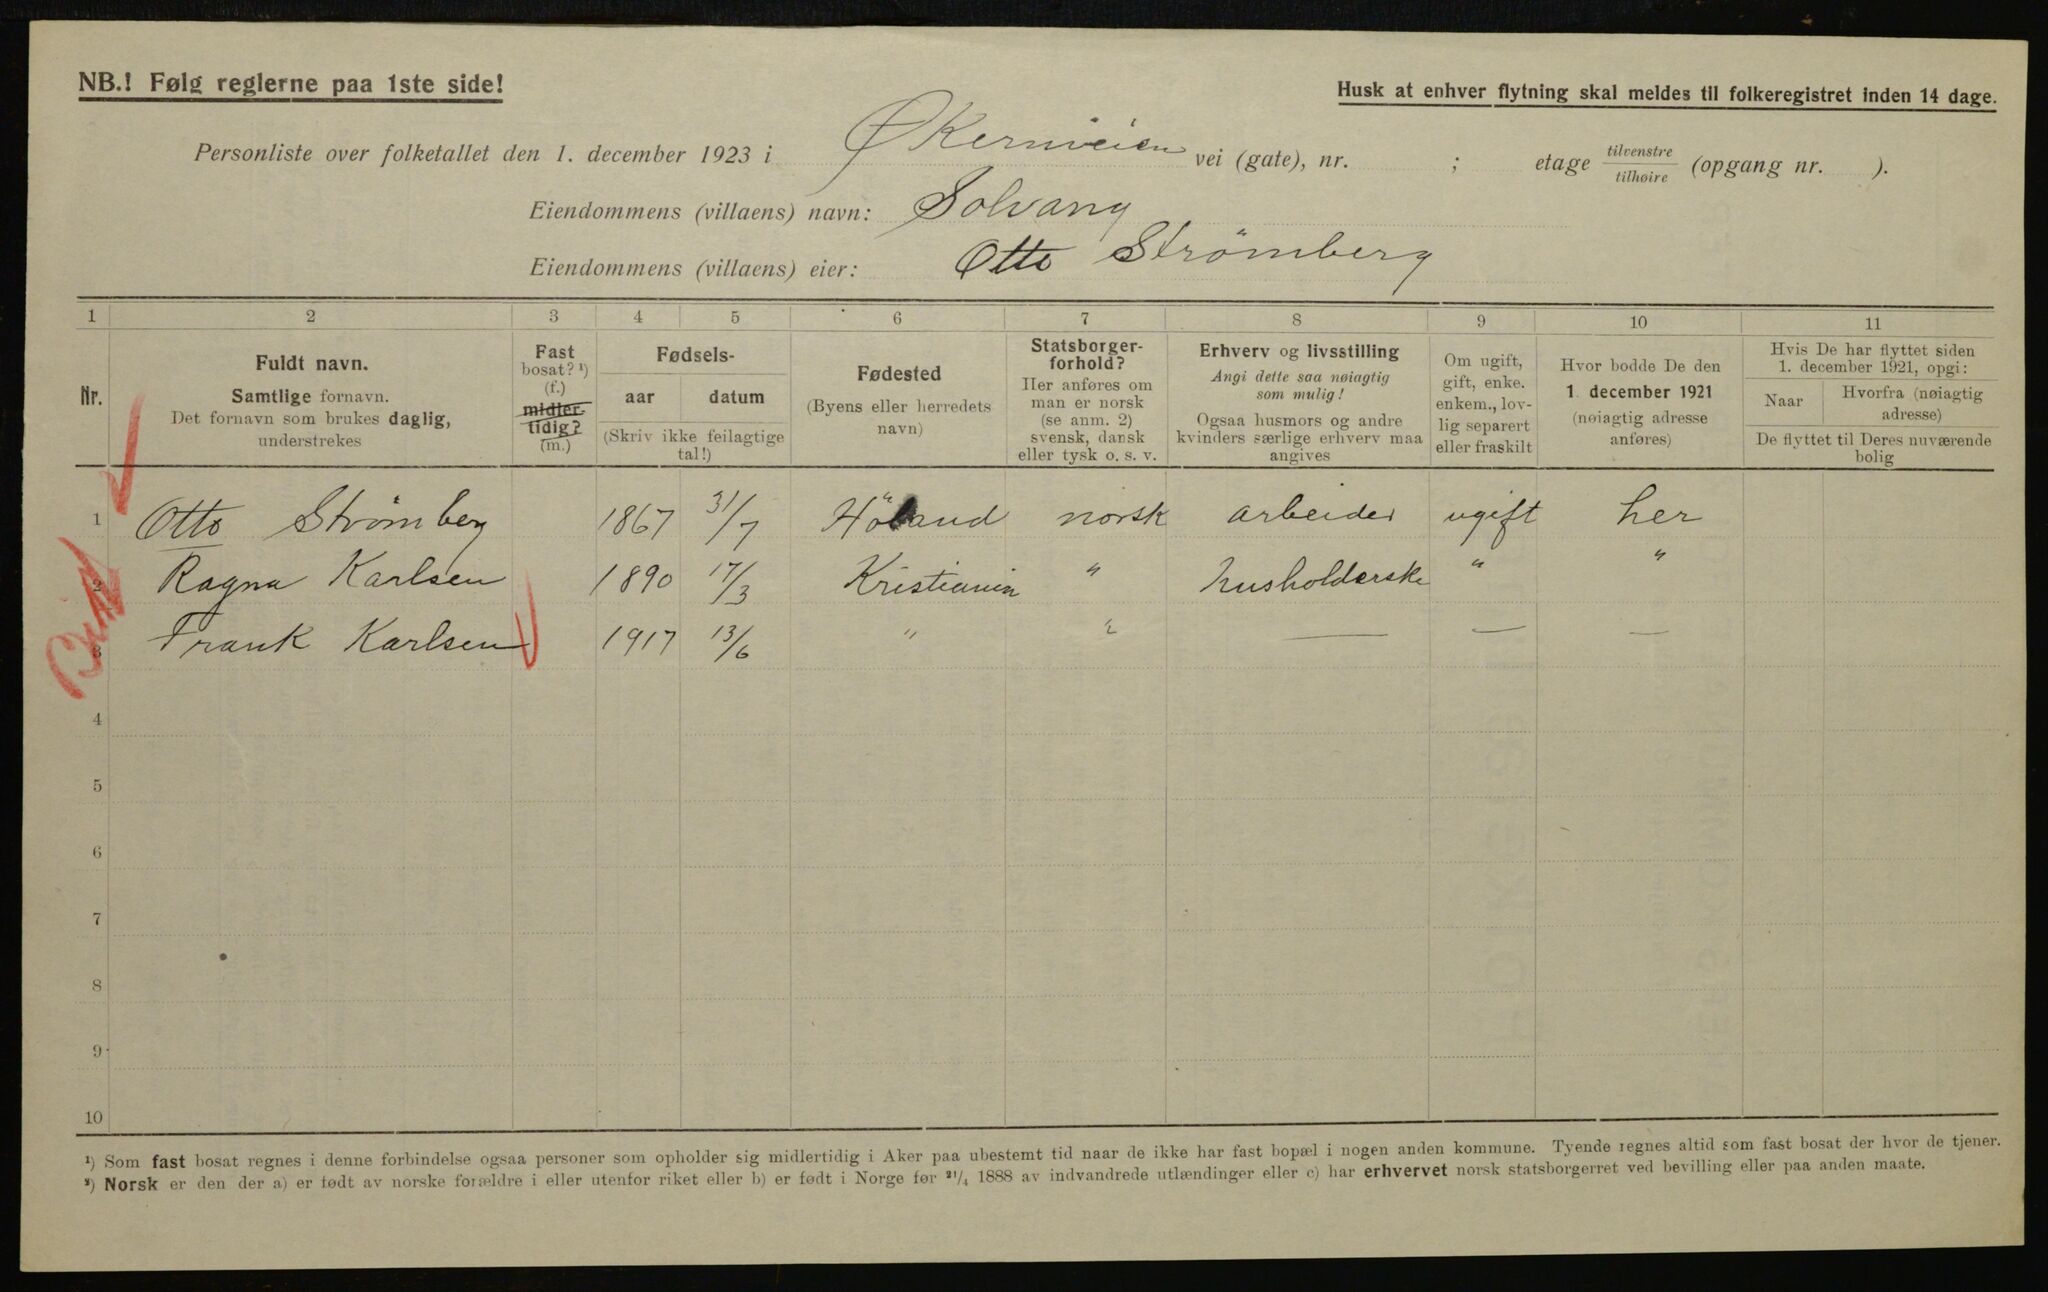 NB.! Følg reglerne paa 1ste side!
Husk at enhver flytning skal meldes til folkeregistret inden 14 dage.
Personliste over folketallet den 1. december 1923 i Økernveien vei (gate), nr. ; etage tilvenstre/tilhøire (opgang nr. ).
Eiendommens (villaens) navn: Solvang
Eiendommens (villaens) eier: Otto Strömberg
1 2 3 4 5 6 7 8 9 10 11
Nr.
Fuldt navn.
Samtlige fornavn.
Det fornavn som brukes daglig,
understrekes
Fast
bosat? ¹)
(f.)
midler-
tidig?
(m.)
Fødsels-
aar datum
(Skriv ikke feilagtige
tal!)
Fødested
(Byens eller herredets
navn)
Statsborger-
forhold?
Her anføres om
man er norsk
(se anm. 2)
svensk, dansk
eller tysk o. s. v.
Erhverv og livsstilling
Angi dette saa nøiagtig
som mulig!
Ogsaa husmors og andre
kvinders særlige erhverv maa
angives
Om ugift,
gift, enke.
enkem., lov-
lig separert
eller fraskilt
Hvor bodde De den
1. december 1921
(nøiagtig adresse
anføres)
Hvis De har flyttet siden
1. december 1921, opgi:
Naar
Hvorfra (nøiagtig
adresse)
De flyttet til Deres nuværende
bolig
1 Otto Strömberg 1867 31/7 Höland norsk arbeider ugift her
2 Ragna Karlsen 1890 17/3 Kristiania " husholderske " "
3 Frank Karlsen 1917 13/6 " " — — —
4
5
6
7
8
9
10
¹) Som fast bosat regnes i denne forbindelse ogsaa personer som opholder sig midlertidig i Aker paa ubestemt tid naar de ikke har fast bopæl i nogen anden kommune. Tyende regnes altid som fast bosat der hvor de tjener.
²) Norsk er den der a) er født av norske forældre i eller utenfor riket eller b) er født i Norge før 21/4 1888 av indvandrede utlændinger eller c) har erhvervet norsk statsborgerret ved bevilling eller paa anden maate.